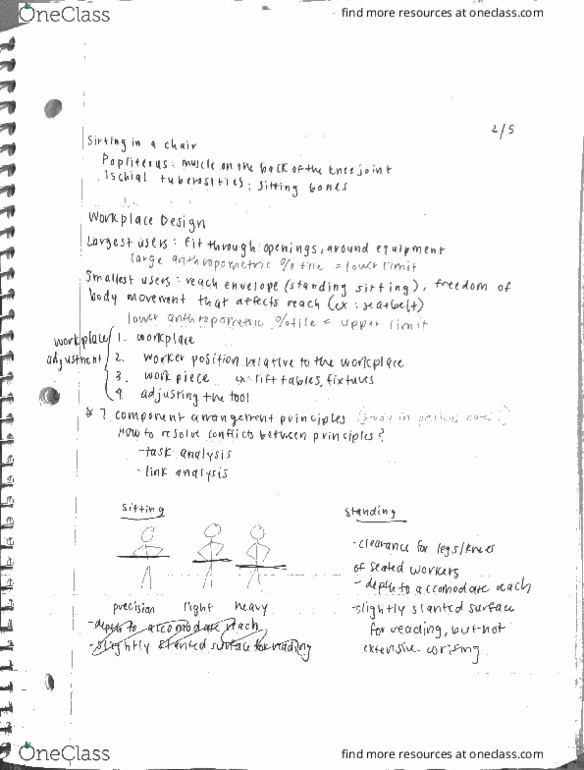 OneClass
find more resources at oneclass.com
2/5
Sitting in a chair
Popliteous: muscle on the back of the knee joint
Ischial tuberosities: sitting bones
Workplace Design
Largest users: fit through openings, around equipment
large anthropometric %tile = lower limit
Smallest users: reach envelope (standing sitting), freedom of
body movement that affects reach (ex: seatbelt)
lower anthropometric %tile = upper limit
workplace adjustment
1. workplace
2. worker position relative to the workplace
3. work piece ex: lift tables, fixtures
4. adjusting the tool
* 7 component arrangement principles
How to resolve conflicts between principles?
-task analysis
-link analysis
Sitting
precision light heavy
-depth to accomodate reach
-slightly slanted surface for reading
Standing
-clearance for legs/knees
of seated workers
-depth to accomodate reach
-slightly slanted surface
for reading, but not
extensive writing
OneClass
find more resources at oneclass.com